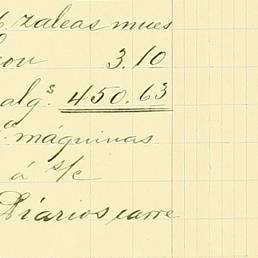 zaleas mues
3.10
alg.s 450.63
máquinas
á s/c
Diarios carre